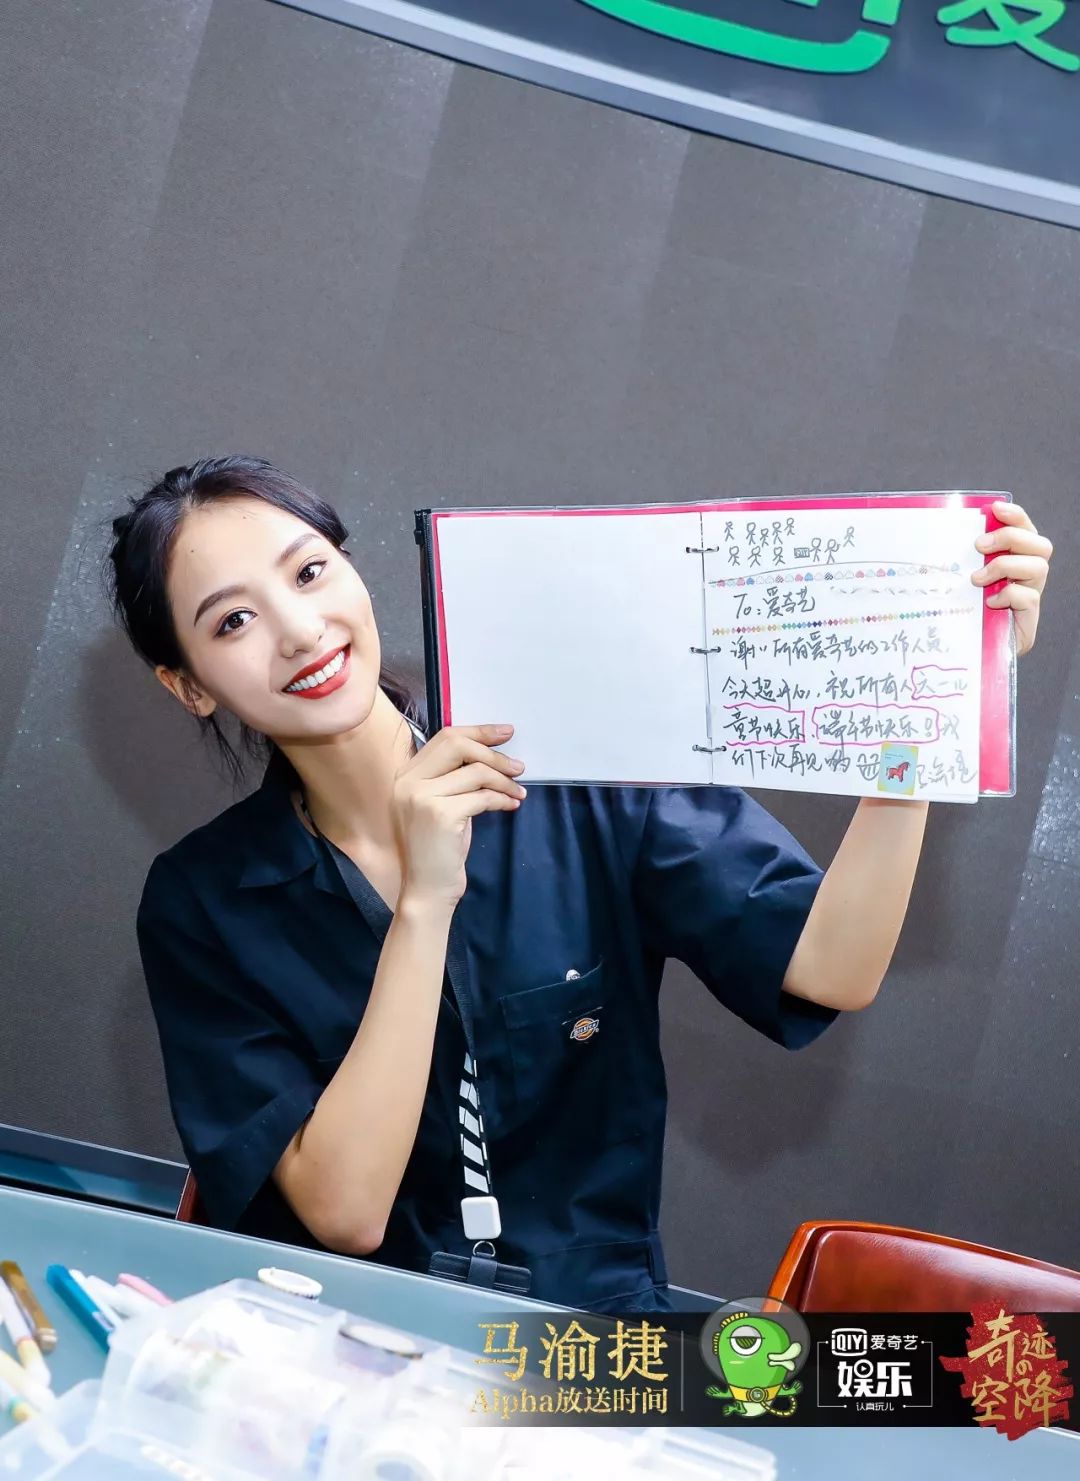 爱
To：爱奇艺
谢谢所有爱奇艺的工作人员，
今天超开心，祝所有人六一儿
童节快乐、端午节快乐！我
们下次再见哟
DICKIES
马渝捷
Alpha放送时间
QIY 爱奇艺
娱乐
认真玩儿
奇迹の
空降